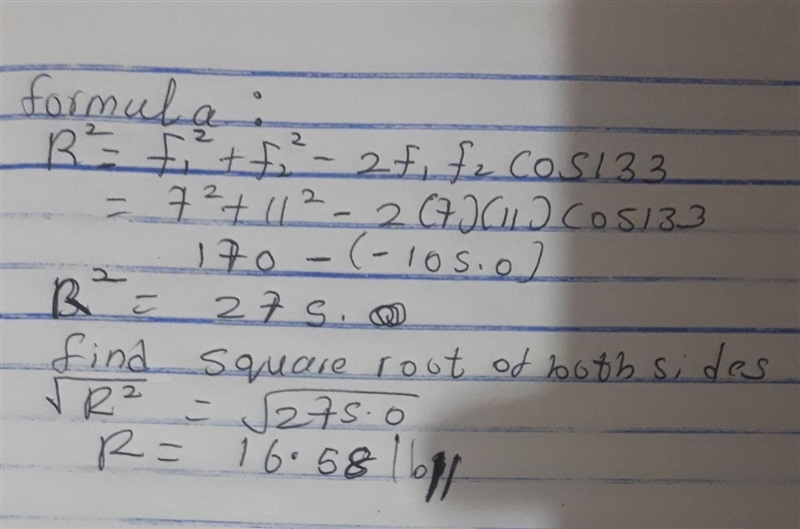 formula :
R² = f₁² + f₂² - 2f₁ f₂ cos133
= 7² + 11² - 2(7)(11) cos133
170 - (-105.0)
R² = 275.0
find square root of both sides
√R² = √275.0
R = 16.58 lb //